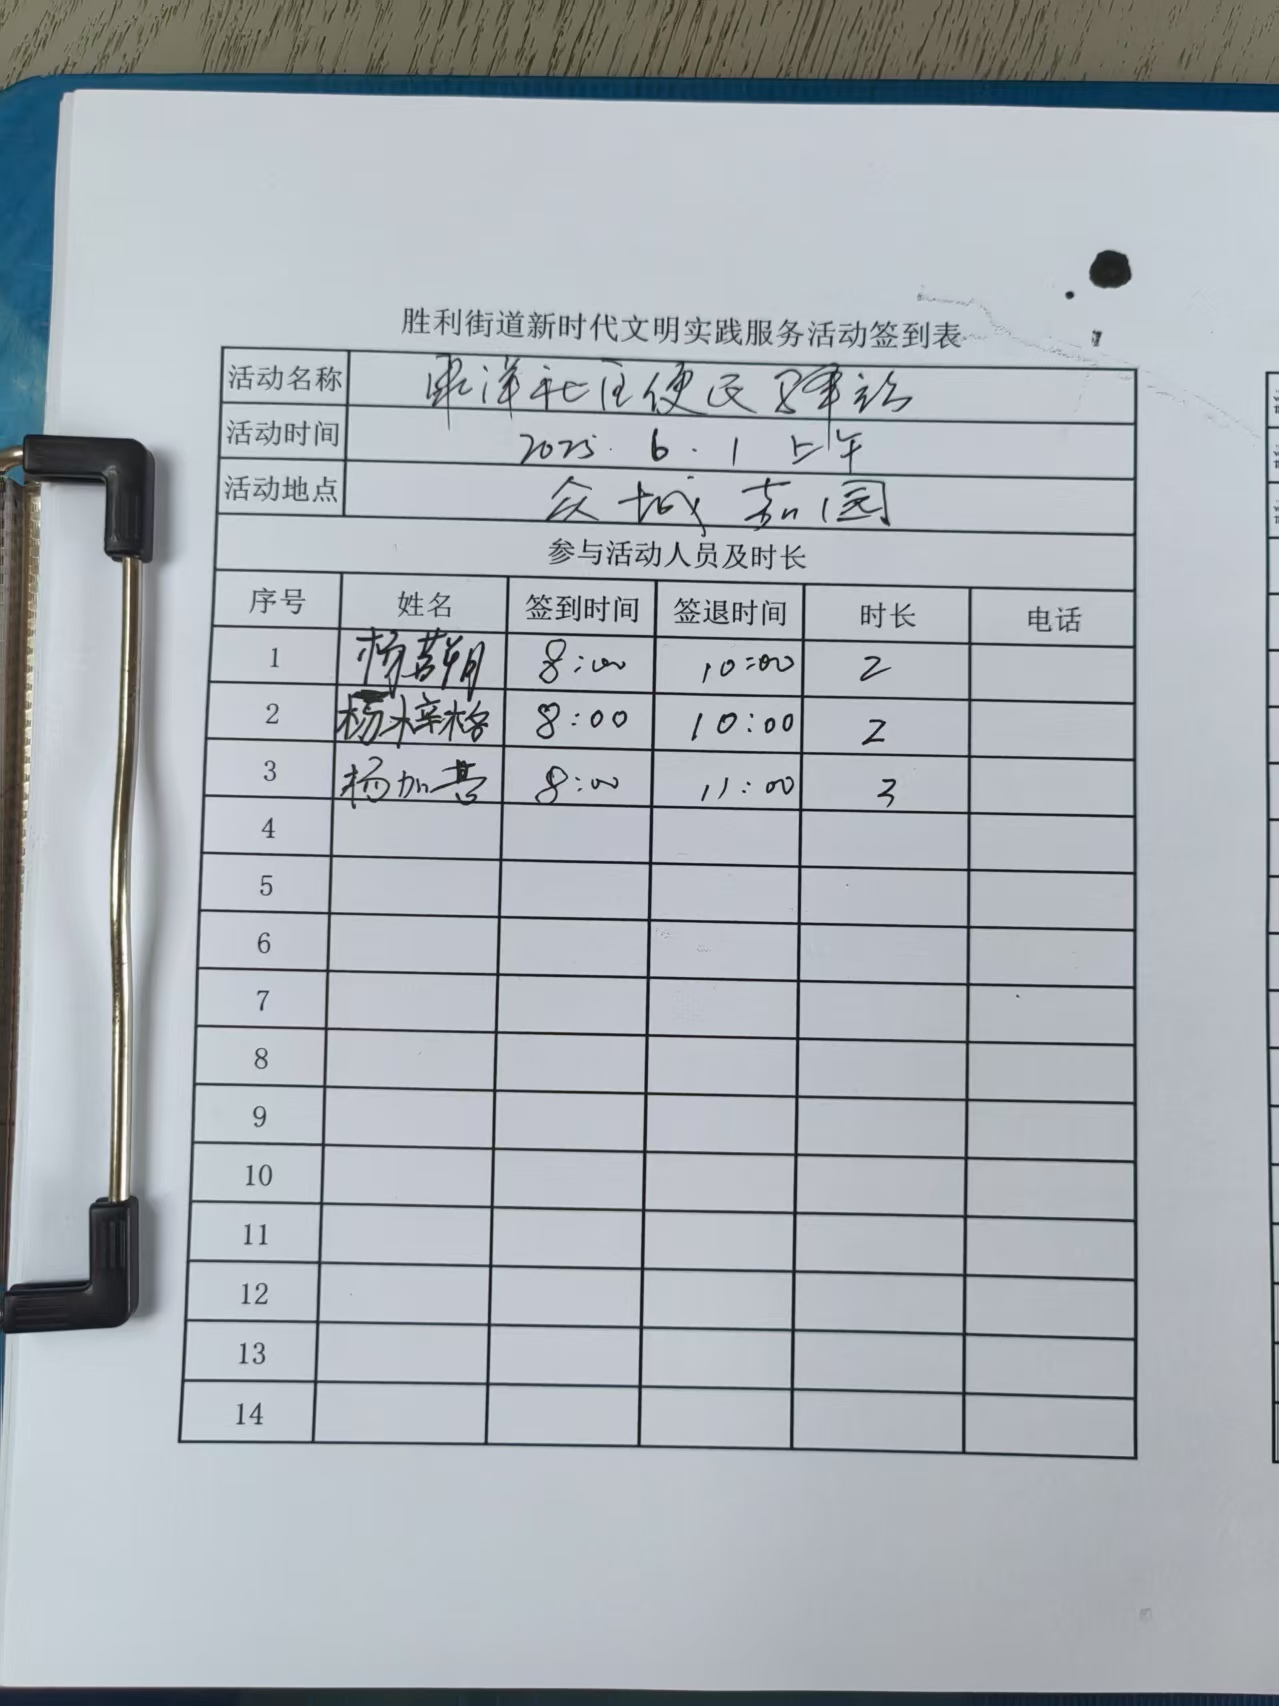 胜利街道新时代文明实践服务活动签到表
活动名称 东洋社区便民驿站
活动时间 2025.6.1 上午
活动地点 众城嘉园
参与活动人员及时长
序号 姓名 签到时间 签退时间 时长 电话
1 杨 8:00 10:00 2
2 杨梓格 8:00 10:00 2
3 杨加营 8:00 11:00 3
4
5
6
7
8
9
10
11
12
13
14